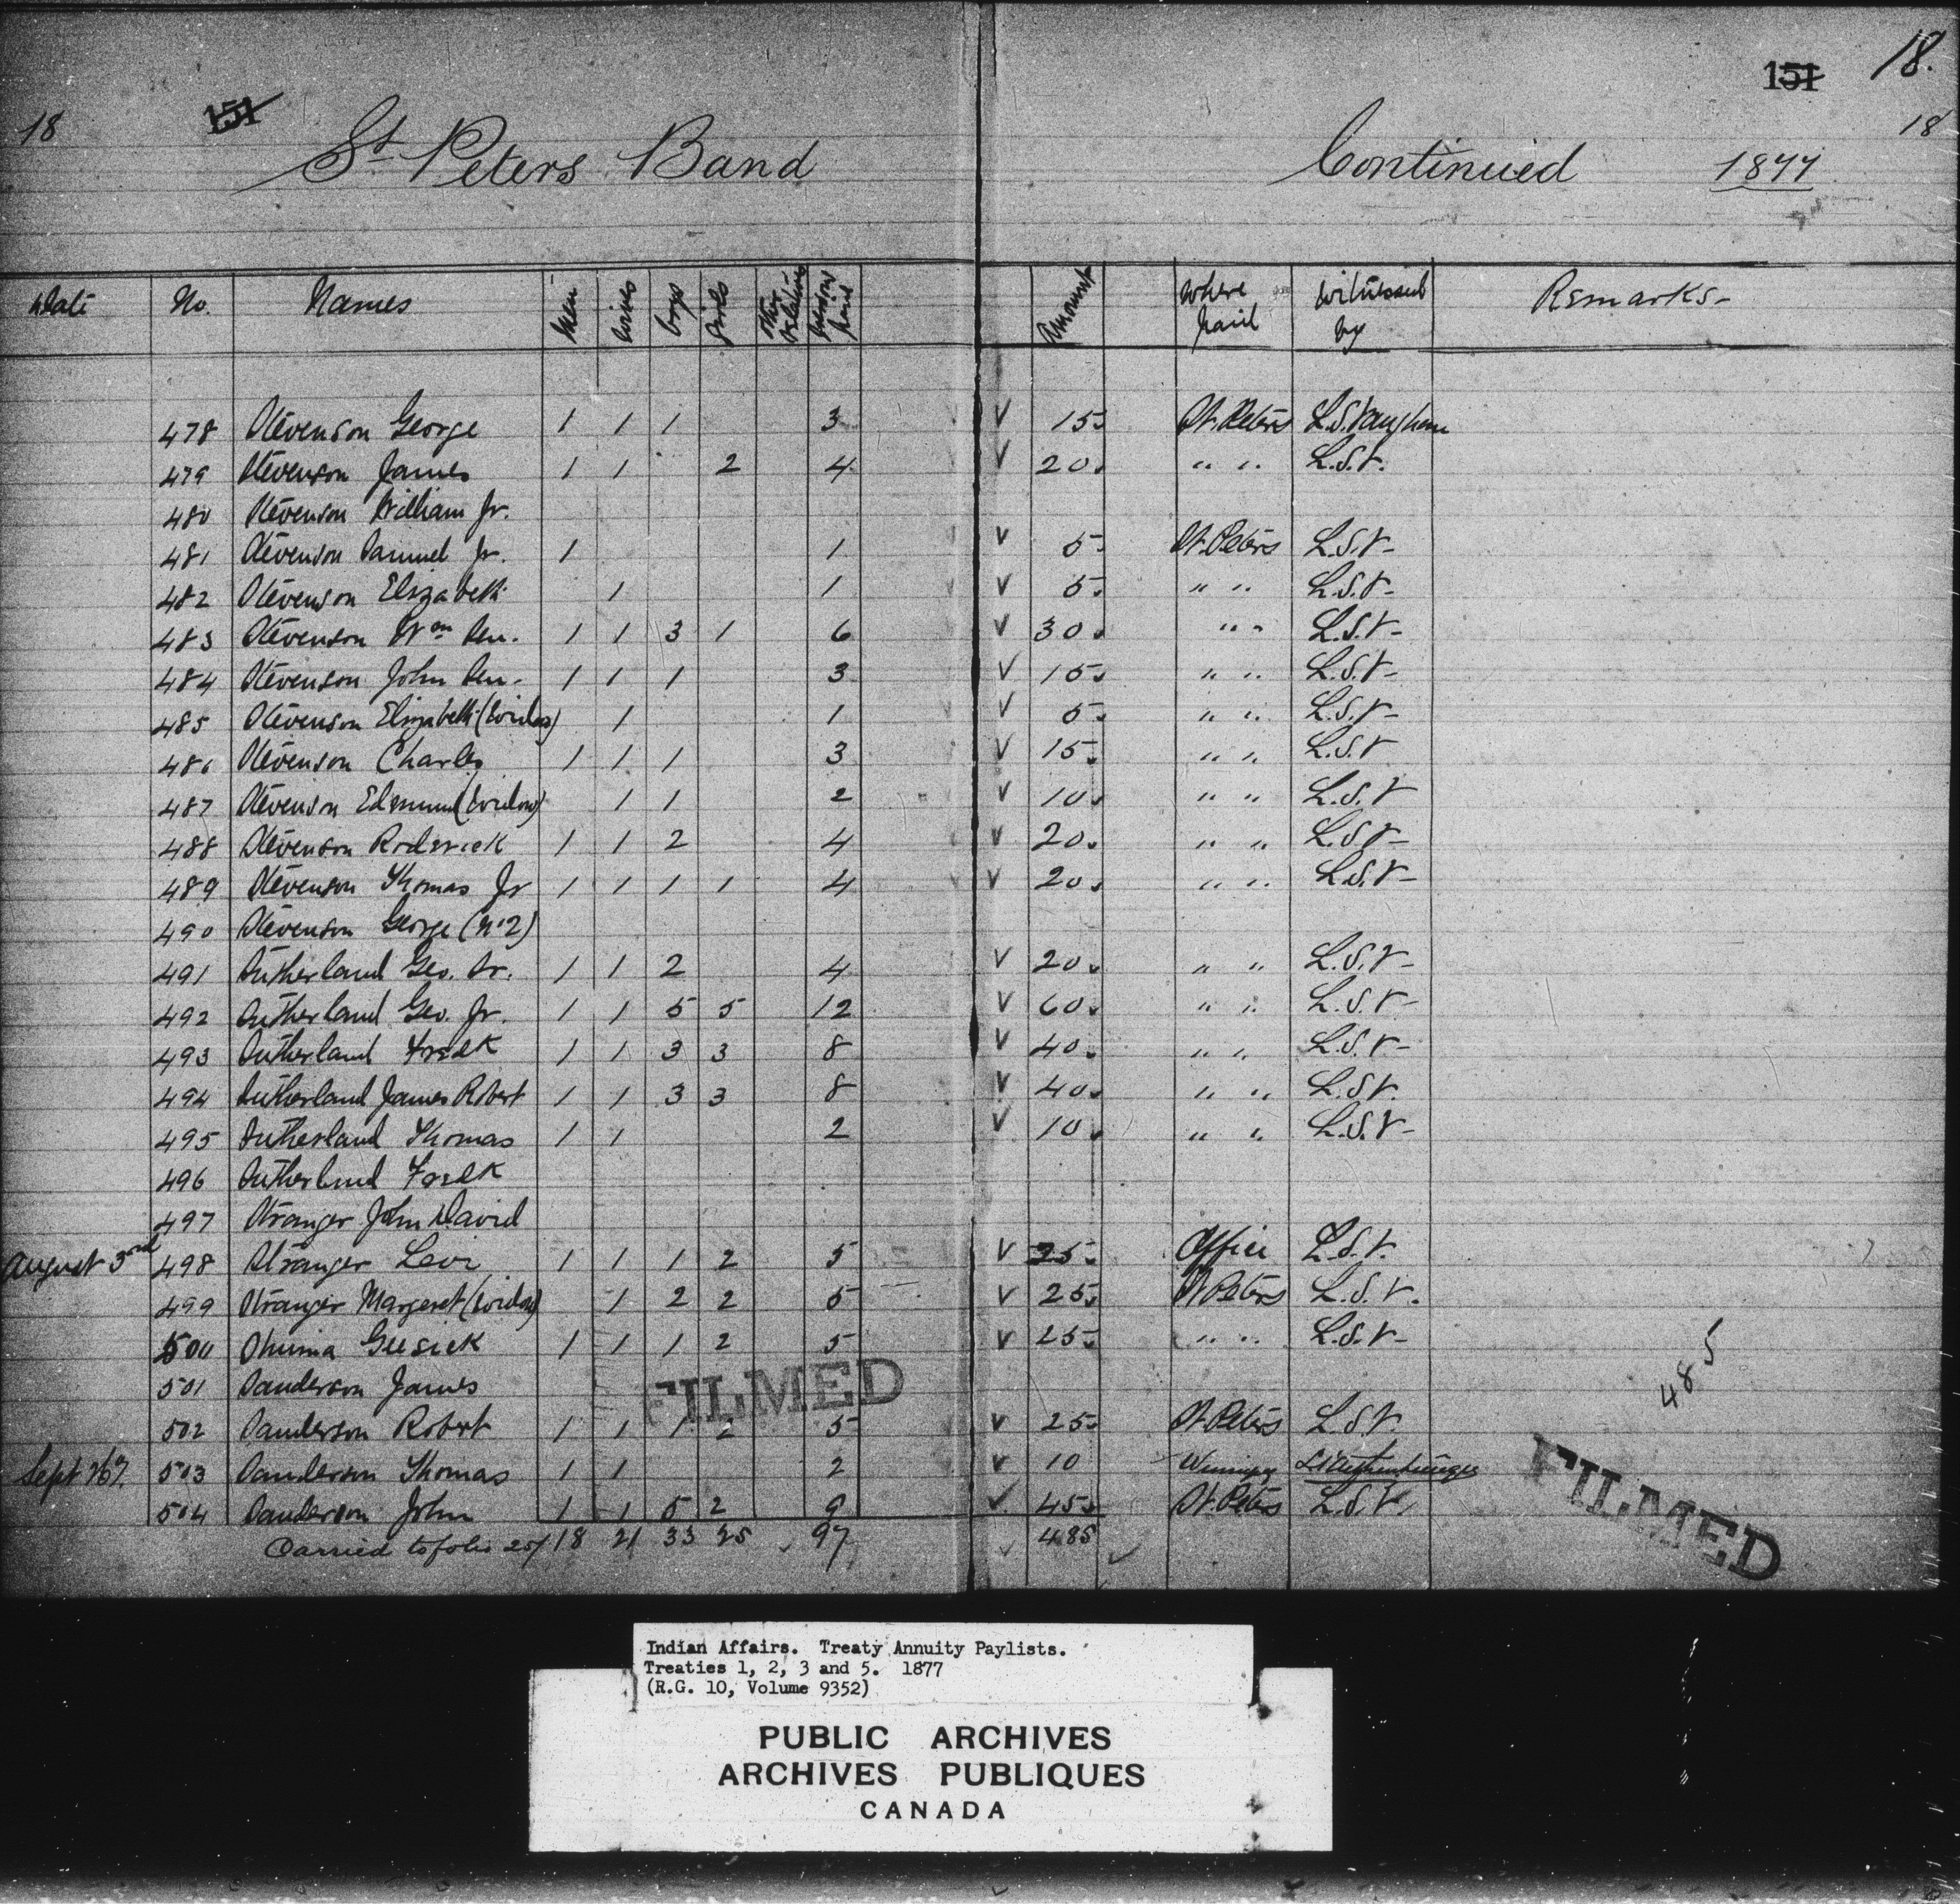 18 151 St. Peters Band Continued 1877 151 18. 18
Date No. Names Men Wives Boys Girls Other Relatives Persons paid Amount Where paid Witnessed by Remarks
478 Stevenson George 1 1 1 3 V 15. St. Peters L.S. Vaughan
479 Stevenson James 1 1 2 4 V 20. " " L.S.V.
480 Stevenson William Jr.
481 Stevenson Samuel Jr. 1 1 V 5. St. Peters L.S.V-
482 Stevenson Elizabeth 1 1 V 5. " " L.S.V-
483 Stevenson Wm Sen. 1 1 3 1 6 V 30. " " L.S.V-
484 Stevenson John Sen. 1 1 1 3 V 15. " " L.S.V-
485 Stevenson Elizabeth (Widow) 1 1 V 5. " " L.S.V-
486 Stevenson Charles 1 1 1 3 V 15. " " L.S.V
487 Stevenson Edmund (Widow) 1 1 2 V 10. " " L.S.V
488 Stevenson Roderick 1 1 2 4 V 20. " " L.S.V-
489 Stevenson Thomas Jr 1 1 1 1 4 V 20. " " L.S.V-
490 Stevenson George (No 2)
491 Sutherland Geo. Sr. 1 1 2 4 V 20. " " L.S.V-
492 Sutherland Geo. Jr. 1 1 5 5 12 V 60. " " L.S.V-
493 Sutherland Fredk 1 1 3 3 8 V 40. " " L.S.V-
494 Sutherland James Robert 1 1 3 3 8 V 40. " " L.S.V.
495 Sutherland Thomas 1 1 2 V 10. " " L.S.V-
496 Sutherland Fredk
497 Stranger John David
August 3rd 498 Stranger Levi 1 1 1 2 5 V 25. Office L.S.V.
499 Stranger Margeret (Widow) 1 2 2 5 V 25. St Peters L.S.V.
500 Geesick 1 1 1 2 5 V 25. " " L.S.V-
501 Sanderson James
FILMED
485
502 Sanderson Robert 1 1 1 2 5 V 25. St. Peters L.S.V.
Sept 26 503 Sanderson Thomas 1 1 2 V 10 Winnipeg
504 Sanderson John 1 1 5 2 9 V 45. St. Peters L.S.V.
FILMED
Carried to folio 251 18 21 33 25 97 485
Indian Affairs. Treaty Annuity Paylists.
Treaties 1, 2, 3 and 5. 1877
(R.G. 10, Volume 9352)
PUBLIC ARCHIVES
ARCHIVES PUBLIQUES
CANADA